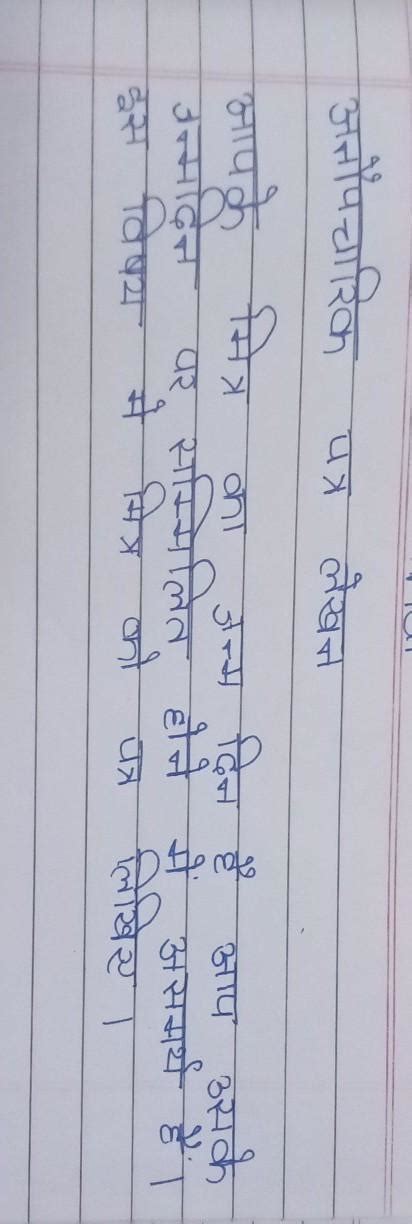 अनौपचारिक पत्र लेखन
आपके मित्र का जन्म दिन है आप उसके
जन्मदिन पर सम्मिलित होने में असमर्थ हैं।
इस विषय में मित्र को पत्र लिखिए।